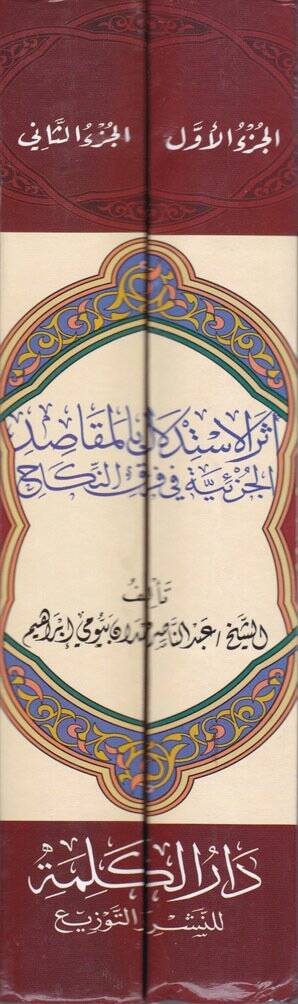 الجُزْءُ الأَوَّل
الجُزْءُ الثَّانِي
أثر الاستدلال بالمقاصد
الجزئية في فرق النكاح
تأليف
الشيخ/ عبدالناصر حمدان بيومي إبراهيم
دَارُ الكَلِمَة
للنشر والتوزيع